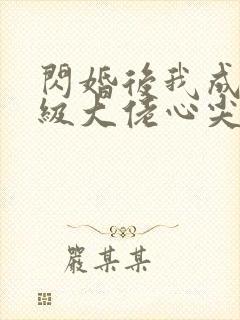 閃婚後我成
級大佬心尖
嚴某某